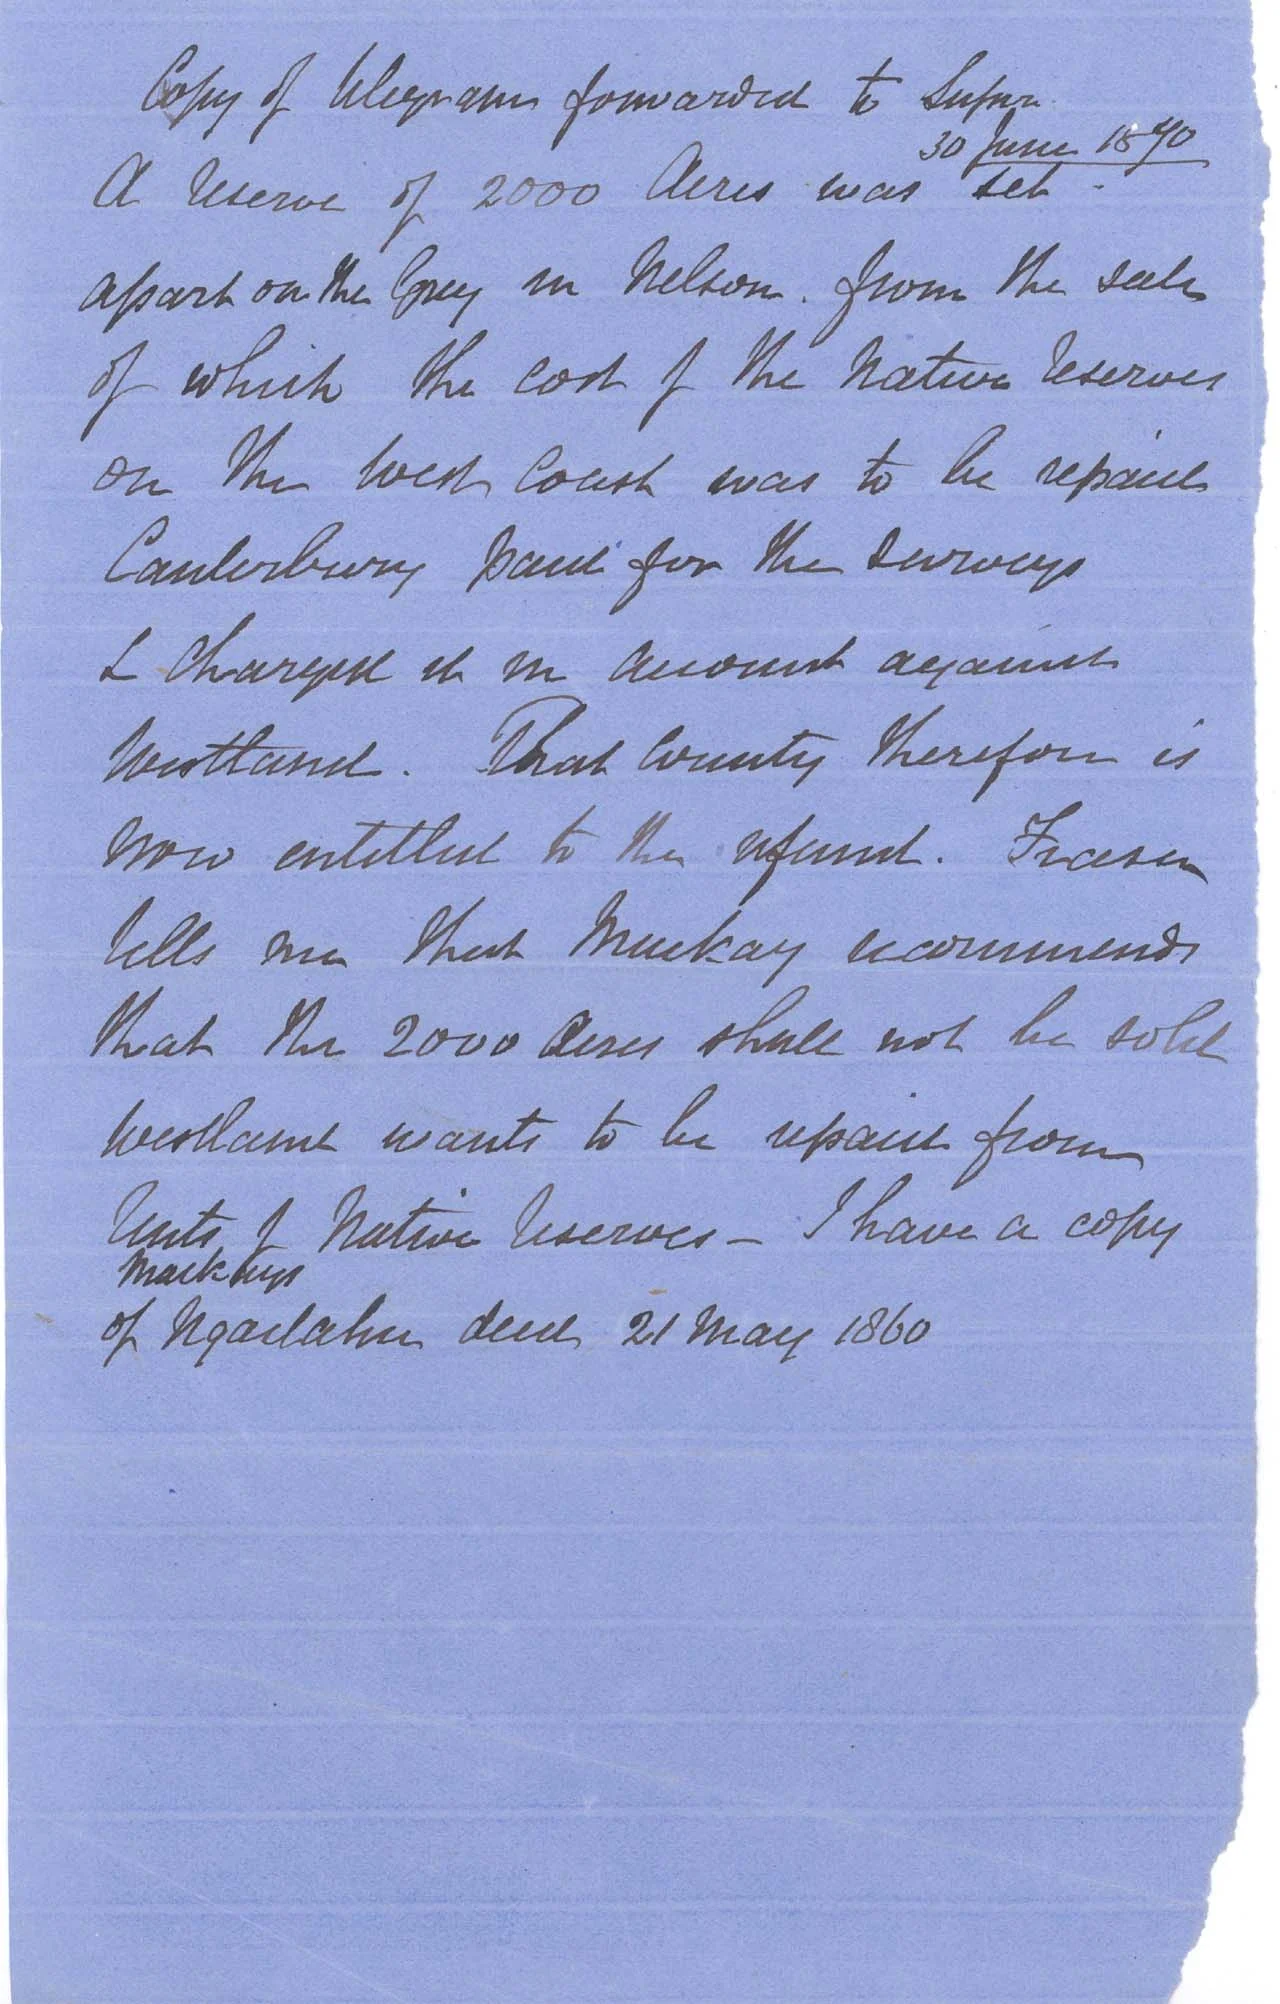 Copy of telegram forwarded to Supr
30 June 1870
A reserve of 2000 Acres was set
apart on the Grey in Nelson. from the sale
of which the cost of the Native reserves
on the West Coast was to be repaid
Canterbury paid for the surveys
& charged it in account against
Westland. That County therefore is
now entitled to the refund. Fraser
tells me that Mackay recommends
that the 2000 acres shall not be sold
Westland wants to be repaid from
rents of Native reserves – I have a copy
Mackays
of Ngaitahu deed 21 May 1860